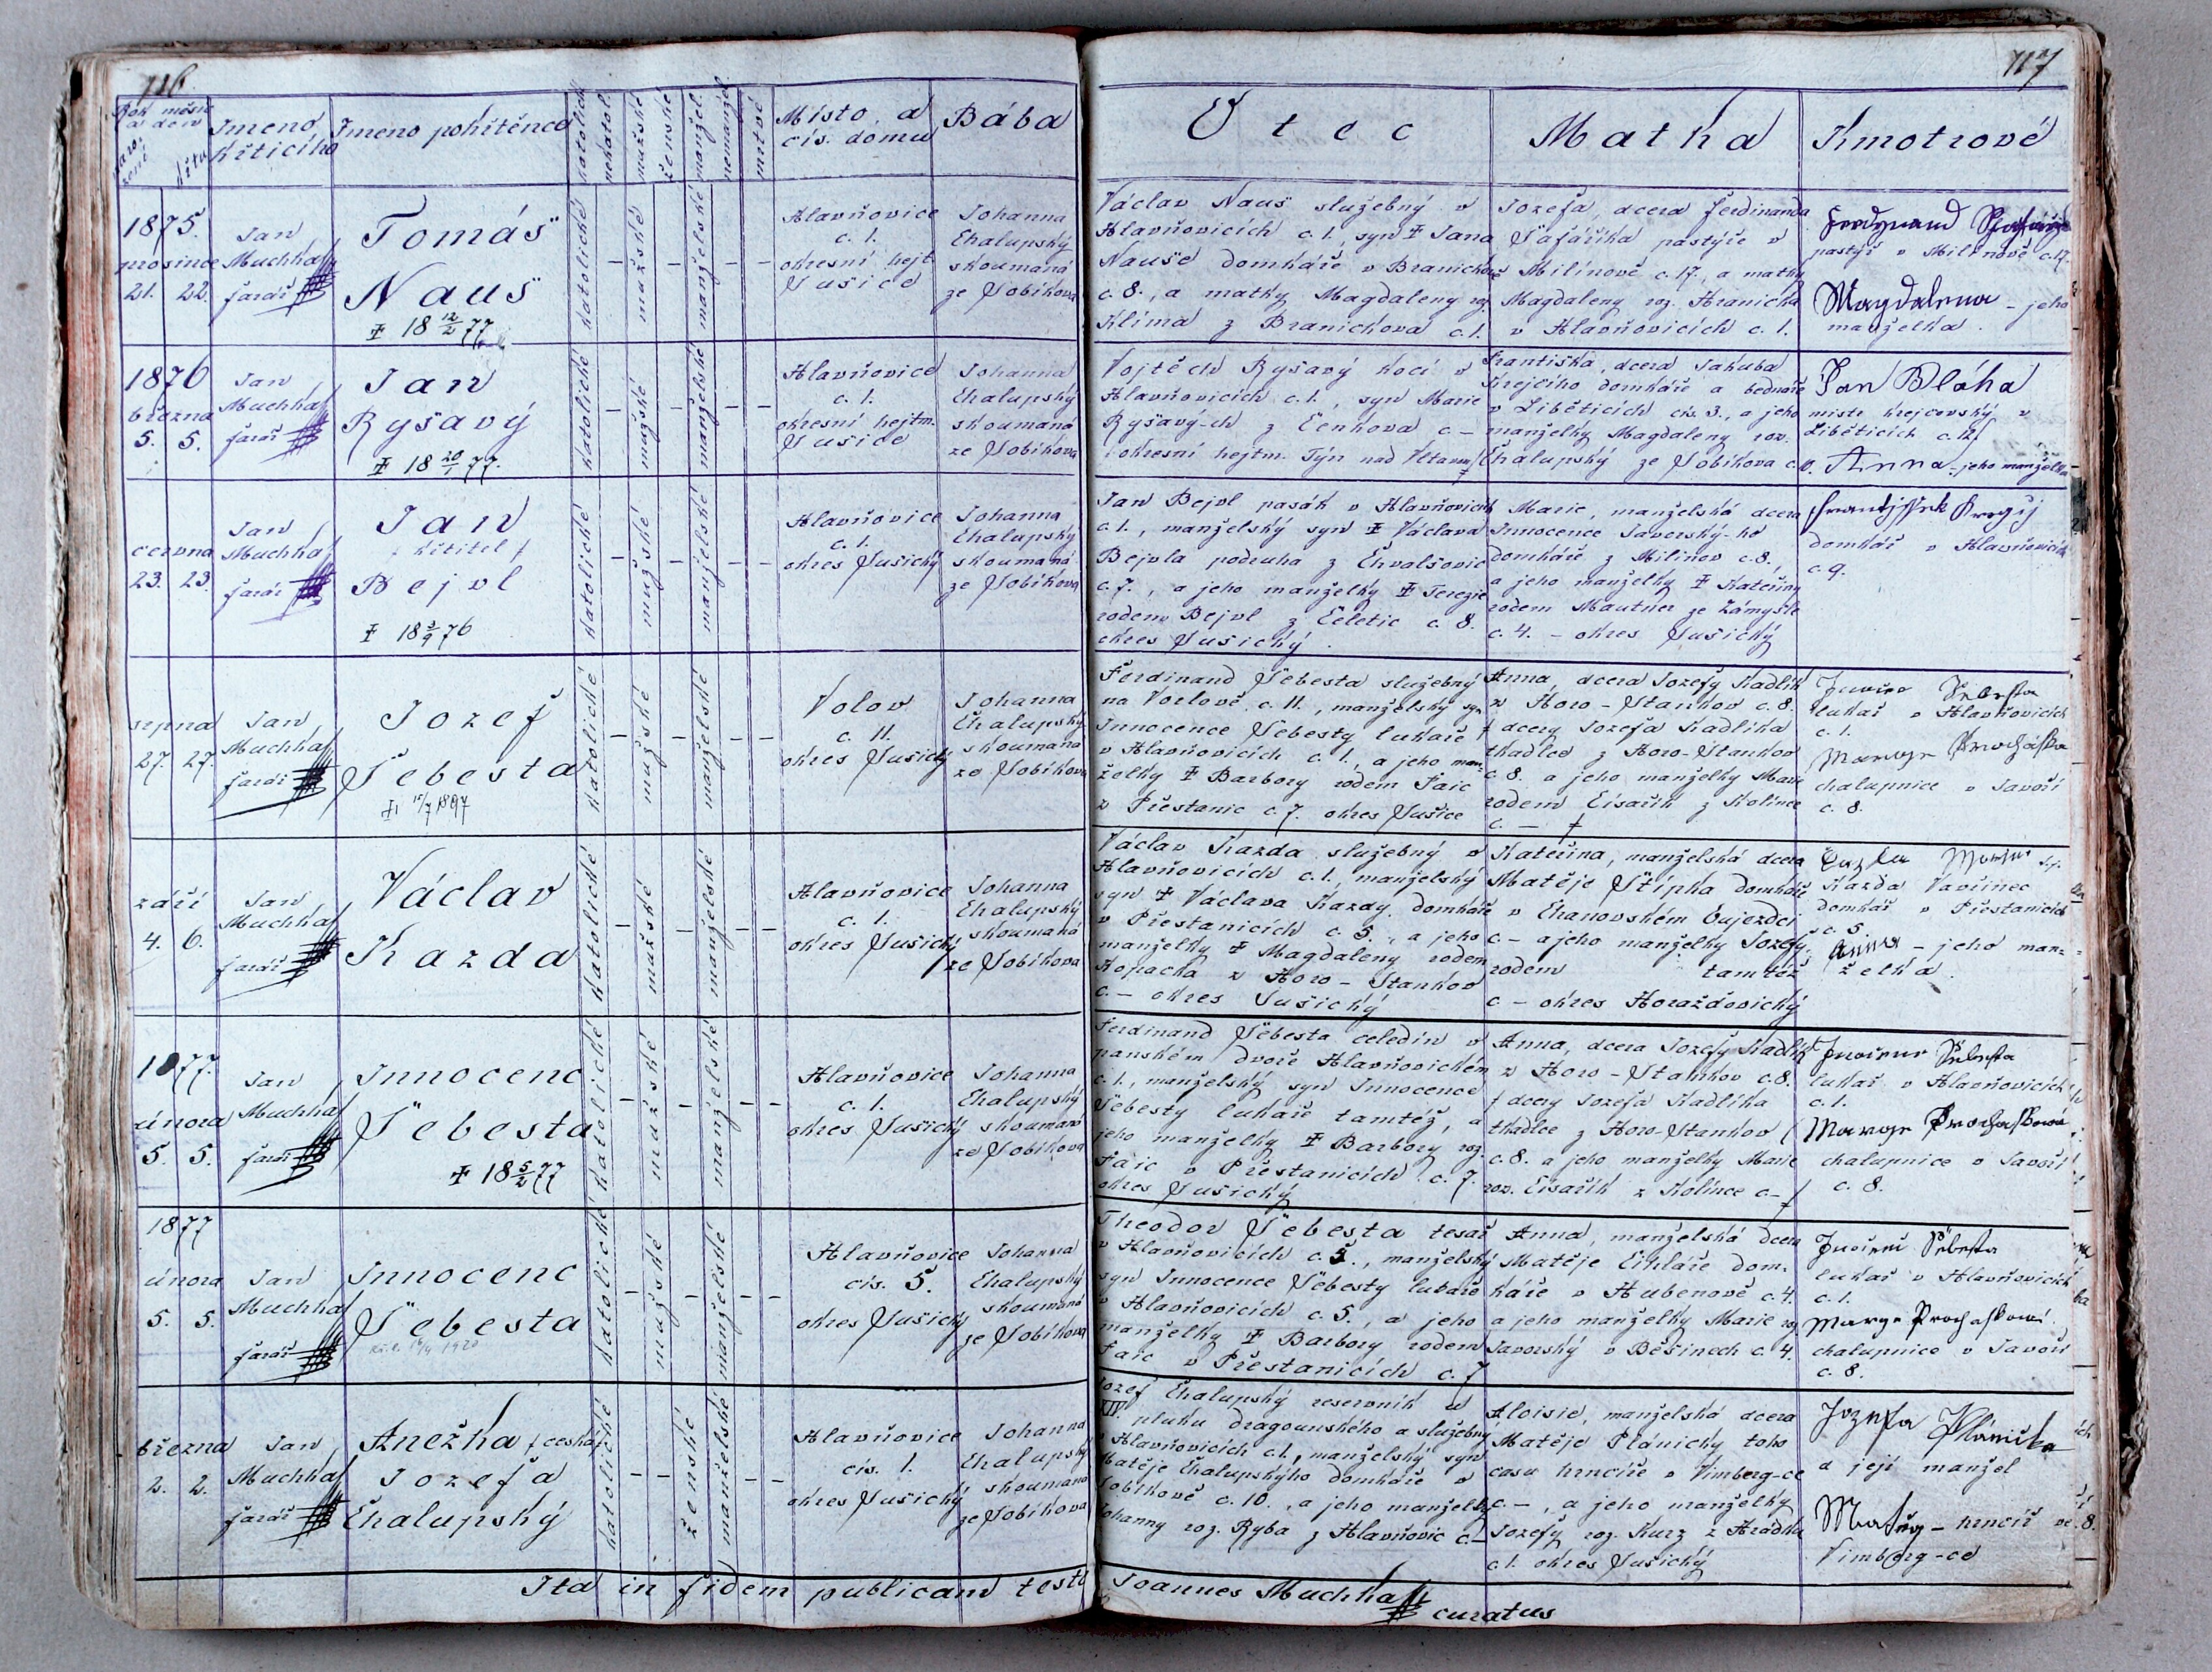 116
117
Rok měsíc
a den
naro-
zení
křtu
Jmeno
křtícího
Jmeno pokřtěnce
katolické
nekatol.
mužské
ženské
manžel.
nemanžel.
mrtvé
Místo a
čís. domu
Bába
Otec
Matka
Kmotrové
1875.
prosince
21. 22.
Jan
Muchka
farář
Tomáš
Nauš
† 18 12/2 77
katolické
mužské
manželské
Hlavňovice
č. 1.
okresní hejt.
Sušice
Johanna
Chalupský
skoumaná
ze Sobíkova
Václav Nauš služebný v
Hlavňovicích č. 1., syn † Jana
Nauše domkáře v Branichově
č. 8., a matky Magdaleny roz.
Klíma z Branichova č. 1.
Jozefa, dcera Ferdinanda
Šafaříka pastýře v
Milínově č. 17., a matky
Magdaleny roz. Hranička
v Hlavňovicích č. 1.
Ferdynand
pastýř v Milínově č. 17.
Magdalena - jeho
manželka.
1876
března
5. 5.
Jan
Muchka
farář
Jan
Ryšavý
† 18 20/1 77.
katolické
mužské
manželské
Hlavňovice
č. 1.
okresní hejtm.
Sušice
Johanna
Chalupský
skoumaná
ze Sobíkova
Vojtěch Ryšavý kočí v
Hlavňovicích č. 1., syn Marie
Ryšavý-ch z Čenkova č. —
okresní hejtm. Týn nad Vltavou
Františka, dcera Jakuba
Krejčího domkáře a bednáře
v Liběticích čís. 3., a jeho
manželky Magdaleny roz.
Chalupský ze Sobíkova č. 10.
Jan Bláha
mistr krejčovský v
Liběticích č. 12
Anna - jeho manželka
června
23. 23.
Jan
Muchka
farář
Jan
křtitel
Bejvl
† 18 3/9 76
katolické
mužské
manželské
Hlavňovice
č. 1.
okres Sušický
Johanna
Chalupský
skoumaná
ze Sobíkova
Jan Bejvl pasák v Hlavňovicích
č. 1., manželský syn † Václava
Bejvla podruha z Chvalšovic
č. 7., a jeho manželky † Terezie
rodem Bejvl z Čeletic č. 8.
okres Sušický.
Marie, manželská dcera
Innocence Javorský-ho
domkáře z Milínov č. 8.,
a jeho manželky † Kateřiny
rodem Mautner ze Zámyšle
č. 4. — okres Sušický
domkář v Hlavňovicích
č. 9.
srpna
27. 27.
Jan
Muchka
farář
Jozef
Šebesta
† 15/7 1897
katolické
mužské
manželské
Volov
č. 11.
okres Sušický
Johanna
Chalupský
skoumaná
ze Sobíkova
Ferdinand Šebesta služebný
na Vorlově č. 11., manželský syn
Innocence Šebesty lukaře
v Hlavňovicích č. 1., a jeho man-
želky † Barbory rodem Faic
z Přestanic č. 7. okres Sušice
Anna, dcera Jozefy Kadlík
z Horo-Stankov č. 8.
dcery Jozefa Kadlíka
tkadlec z Horo-Stankov
č. 8. a jeho manželky Marie
rodem Čisařík z Kolince
č. —
Šebesta
lukař v Hlavňovicích
č. 1.
chalupnice v Javoří
č. 8.
září
4. 6.
Jan
Muchka
farář
Václav
Kazda
katolické
mužské
manželské
Hlavňovice
č. 1.
okres Sušický
Johanna
Chalupský
skoumaná
ze Sobíkova
Václav Kazda služebný v
Hlavňovicích č. 1., manželský
syn † Václava Kazdy domkáře
v Přestanicích č. 5., a jeho
manželky † Magdaleny rodem
Kopačka z Horo-Stankov
č. — okres Sušický
Kateřina, manželská dcera
Matěje Štípka domkáře
v Chanovském Oujezdci
č. — a jeho manželky Jozefy,
rodem tamtéž
č — okres Horažďovický
Kazda Vavřinec
domkář v Přestanicích
č. 5.
Anna - jeho man-
želka.
1877
února
5. 5.
Jan
Muchka
farář
Innocenc
Šebesta
† 18 5/2 77
katolické
mužské
manželské
Hlavňovice
č. 1.
okres Sušický
Johanna
Chalupský
skoumaná
ze Sobíkova
Ferdinand Šebesta čeledín v
panském dvoře Hlavňovickém
č. 1., manželský syn Innocence
Šebesty lukaře tamtéž, a
jeho manželky † Barbory roz.
Faic v Přestanicích č. 7.
okres Sušický
Anna, dcera Jozefy Kadlík
z Horo-Stankov č. 8.
dcery Jozefa Kadlíka
tkadlce z Horo-Stankov
č. 8. a jeho manželky Marie
roz. Čisařík z Kolince č —
Šebesta
lukař v Hlavňovicích
č. 1.
chalupnice v Javoří
č. 8.
1877
února
5. 5.
Jan
Muchka
farář
Innocenc
Šebesta
katolické
mužské
manželské
Hlavňovice
čís. 5.
okres Sušický
Johanna
Chalupský
skoumaná
ze Sobíkova
Theodor Šebesta tesař
v Hlavňovicích č. 5., manželský
syn Innocence Šebesty lukaře
v Hlavňovicích č. 5., a jeho
manželky † Barbory rodem
Faic v Přestanicích č. 7
Anna, manželská dcera
Matěje Cihláře dom-
káře v Hubenově č. 4.
a jeho manželky Marie roz.
Javorský v Běšinech č. 4.
Šebesta
lukař v Hlavňovicích
č. 1.
chalupnice v Javoří
č. 8.
března
2. 2.
Jan
Muchka
farář
Anežka (česká)
Jozefa
Chalupský
katolické
ženské
manželské
Hlavňovice
čís. 1.
okres Sušický
Johanna
Chalupský
skoumaná
ze Sobíkova
Jozef Chalupský reservník u
XIV. pluku dragounského a služebný
v Hlavňovicích č. 1., manželský syn
Matěje Chalupskýho domkáře v
Sobíkově č. 10., a jeho manželky
Johanny roz. Ryba z Hlavňovic č. —
Aloisie, manželská dcera
Matěje Plánický toho
času hrnčíře v Vimberg-ce
č. —, a jeho manželky
Jozefy roz. Kurz z Hrádku
č. 1. okres Sušický
Jozefa Plánička
a její manžel
Matěj - hrnčíř ve
Vimberg-ce
Ita in fidem publicam teste Joannes Muchka
curatus